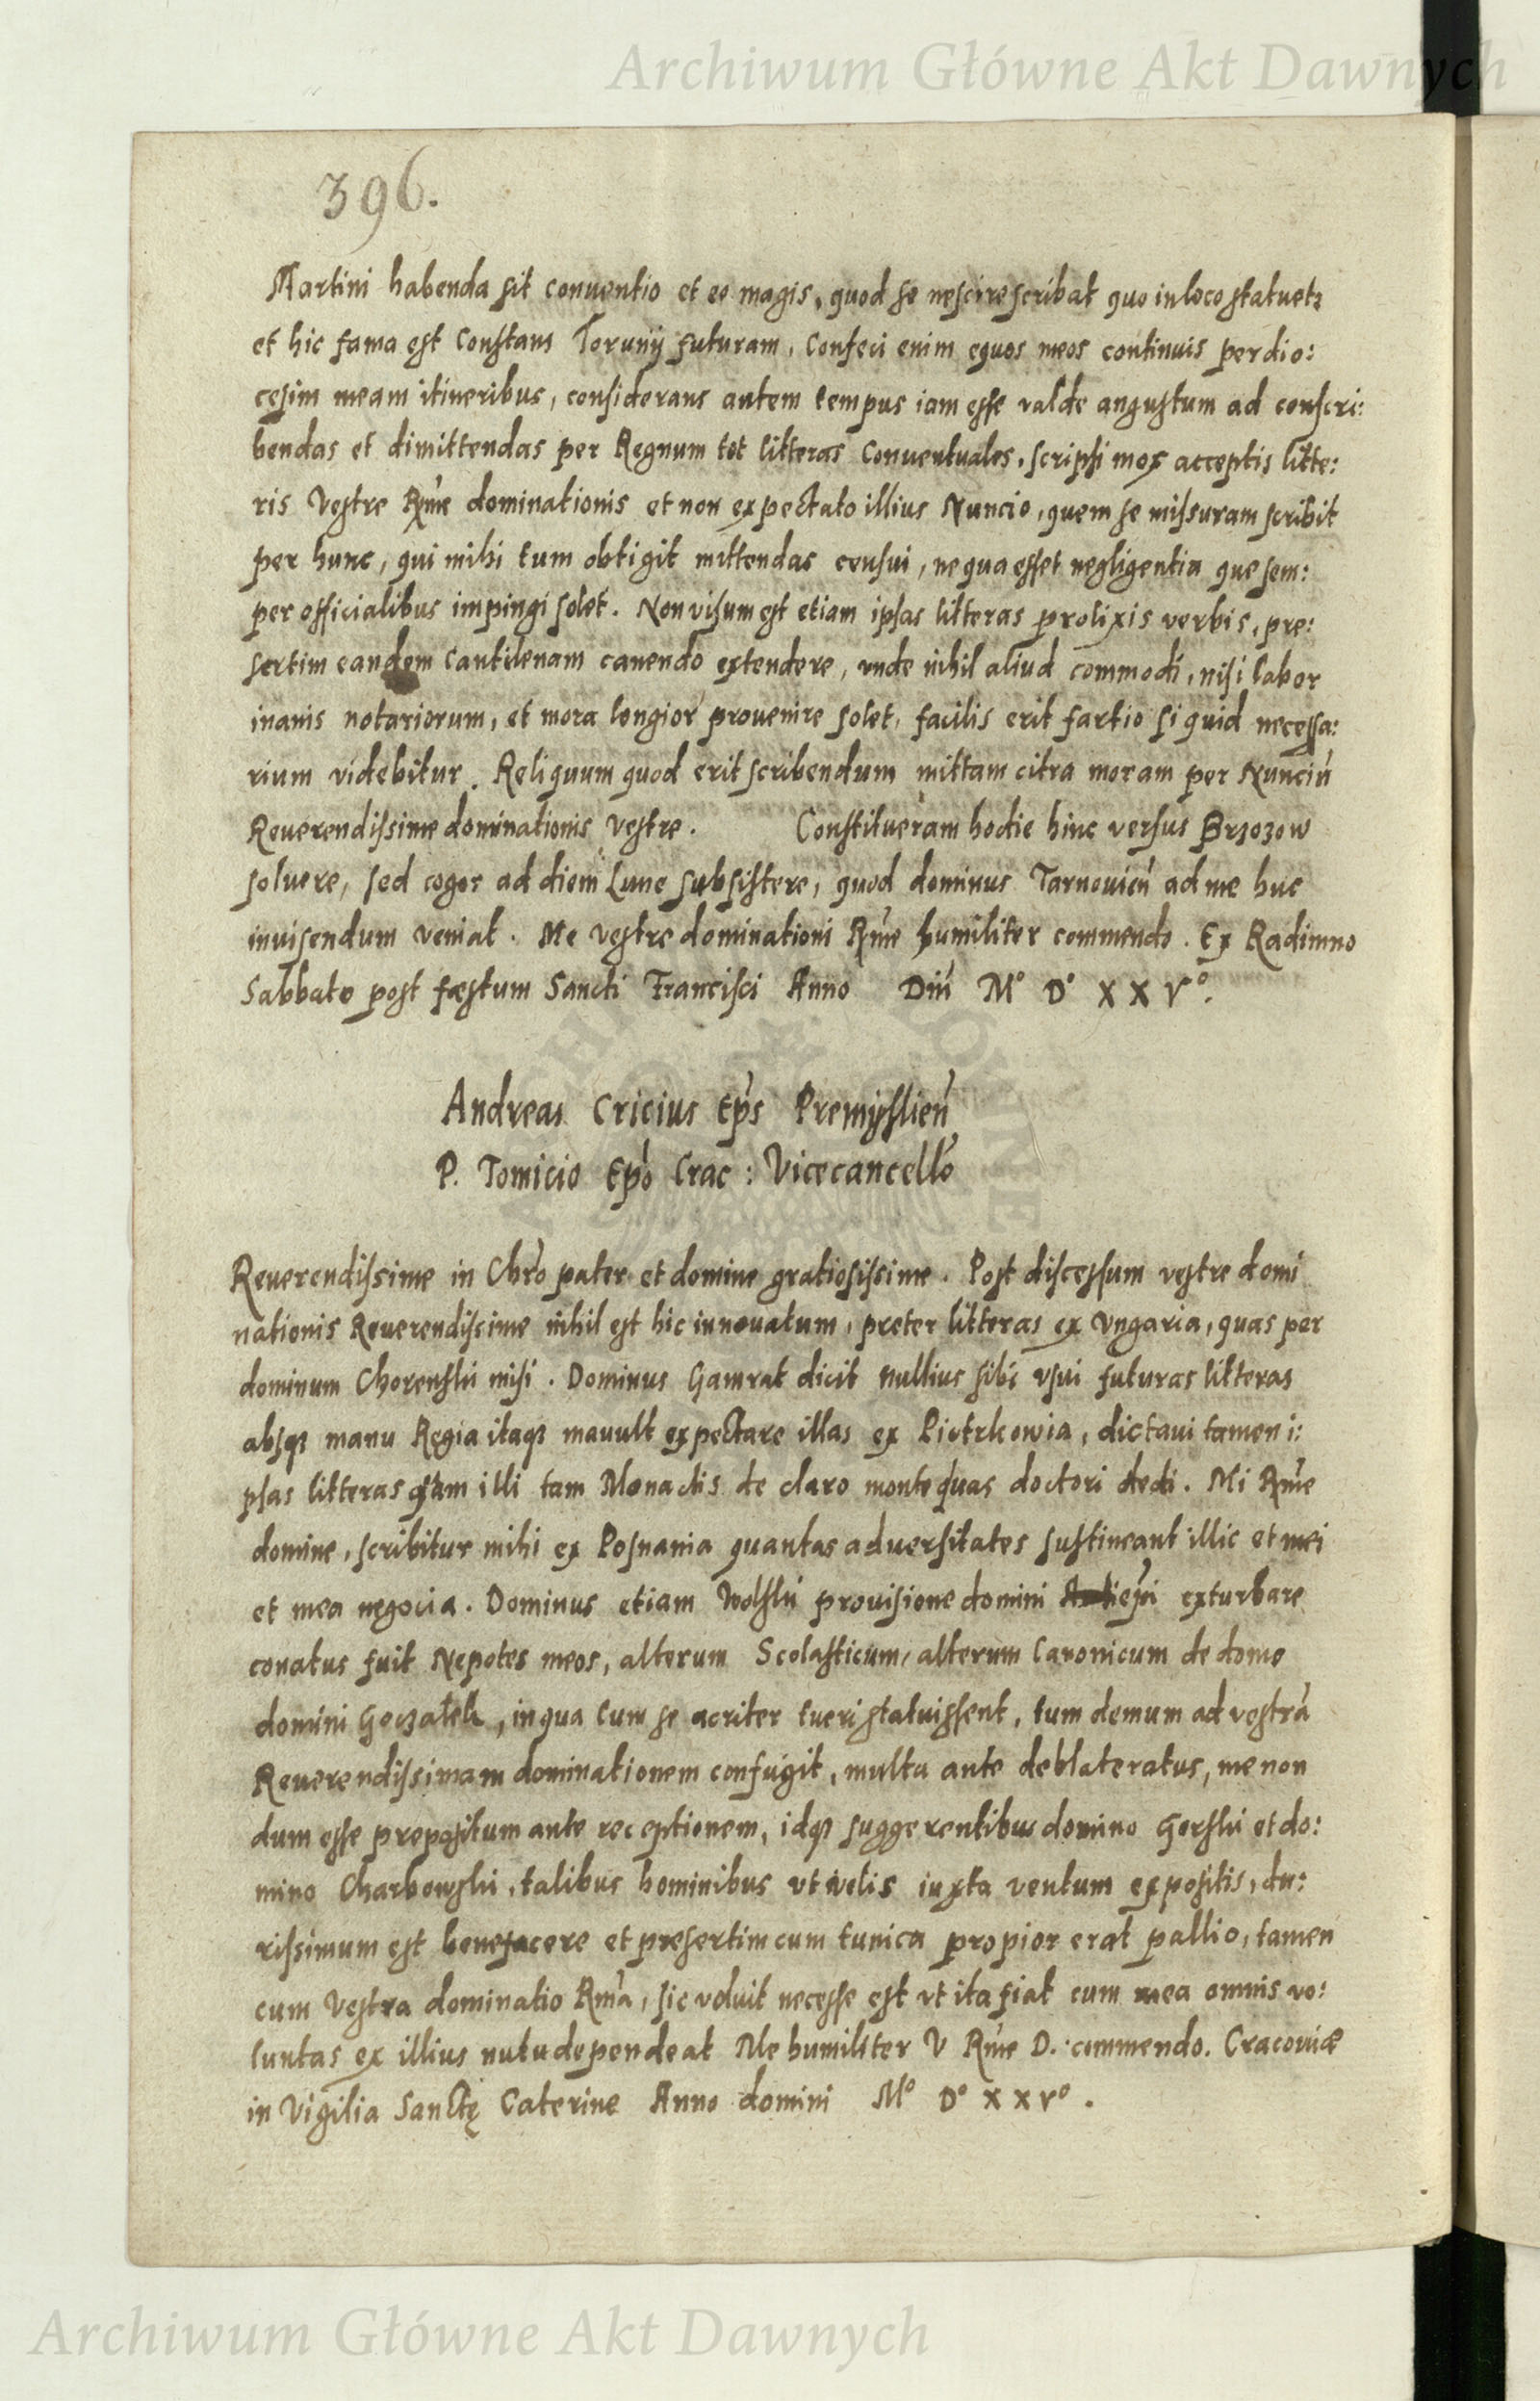 Archiwum Główne Akt Dawnych
396.
Martini habenda sit conuentio et eo magis, quod se nescire scribat quo in loco statuetꝫ
et hic fama est Constans Torunÿ futuram, Confeci enim equos meos continuis per dio:
cesim meam itineribus, considerans autem tempus iam esse valde angustum ad conscri:
bendas et dimittendas per Regnum tot litteras Conuentuales, scripsi mox acceptis litte:
ris Vestre Rme dominationis et non expectato illius Nuncio, quem se missuram scribit
per hunc, qui mihi tum obtigit mittendas censui, ne qua esset negligentia que sem:
per officialibus impingi solet. Non visum est etiam ipsas litteras prolixis verbis, pre:
sertim eandem Cantilenam canendo extendere, vnde nihil aliud commodi, nisi labor
inanis notariorum, et mora longior prouenire solet, facilis erit fartio si quid necessa:
rium videbitur. Reliquum quod erit scribendum mittam citra moram per Nunciū
Reuerendissime dominationis Vestre. Constitueram hodie hinc versus Brzozow
soluere, sed cogor ad diem Lune subsistere, quod dominus Tarnouien̄ ad me huc
inuisendum veniat. Me vestre dominationi Rme humiliter commendo. Ex Radimno
Sabbato post fæstum Sancti Francisci Anno Din̄ Mo Do X X Vo.
Andreas Cricius Eps Premÿslien̄
P. Tomicio Epo Crac: Vicecancello
Reuerendissime in Chro pater et domine gratiosissime. Post discessum vestre domi
nationis Reuerendissime nihil est hic innouatum, preter litteras ex Vngaria, quas per
dominum Chorenski misi. Dominus Gamrat dicit nullius sibi vsui futuras litteras
absqꝫ manu Regia itaqꝫ mauult expectare illas ex Piotrkowia, dictaui tamen i:
psas litteras quam illi tam Monachis de claro monte quas doctori dedi. Mi Rme
domine, scribitur mihi ex Posnania quantas aduersitates sustineant illic et mei
et mea negocia. Dominus etiam Wolski prouisione domini exturbare
conatus fuit Nepotes meos, alterum Scolasticum, alterum Canonicum de domo
domini Gorzatek, in qua cum se acriter tueri statuissent, tum demum ad vestrā
Reuerendissimam dominationem confugit, multa ante deblateratus, me non
dum esse prepositum ante receptionem, idqꝫ suggerentibus domino Gorski et do:
mino Charbowski, talibus hominibus vt velis iuxta ventum expositis, du:
rissimum est benefacere et presertim cum tunica propior erat pallio, tamen
cum Vestra dominatio Rma, sic voluit necesse est vt ita fiat cum mea omnis vo:
luntas ex illius nutu dependeat Me humiliter V Rme D. commendo. Cracouiæ
in Vigilia Sanctę Caterine Anno domini Mo Do X X Vo.
Archiwum Główne Akt Dawnych